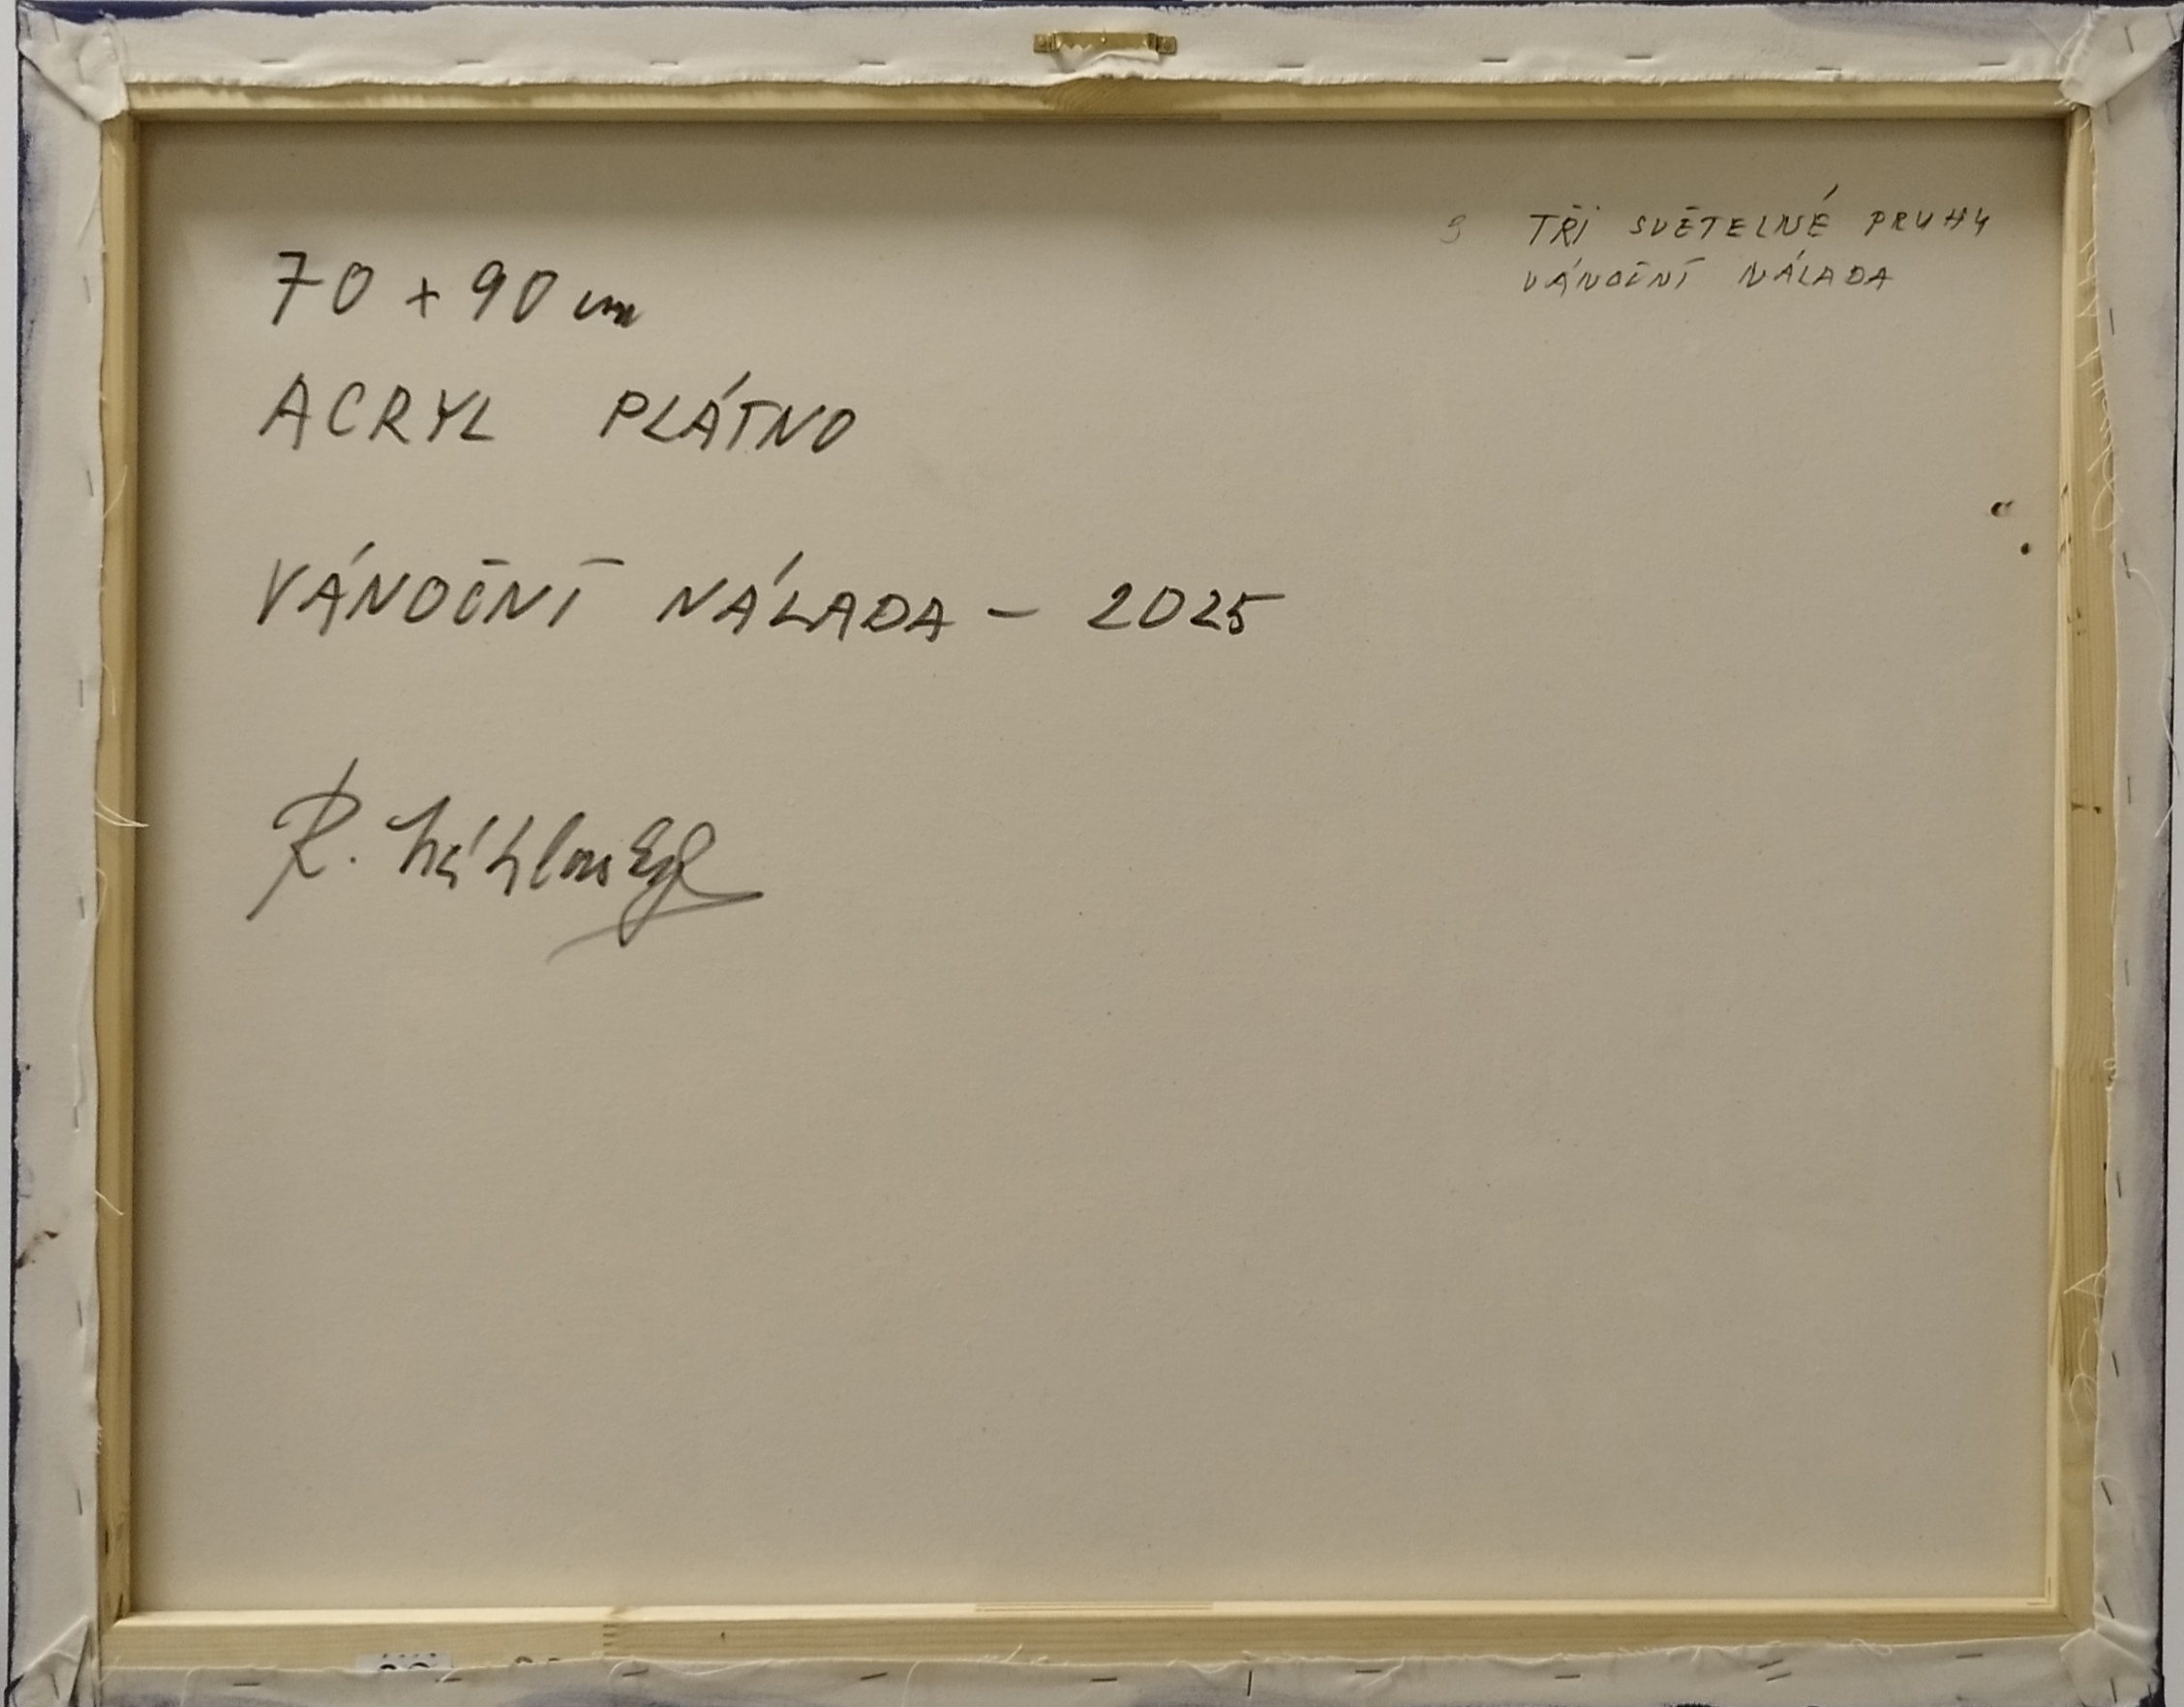 70 + 90 cm
ACRYL PLÁTNO
VÁNOČNÍ NÁLADA – 2025
R.
3 TŘI SVĚTELNÉ PRUHY
VÁNOČNÍ NÁLADA